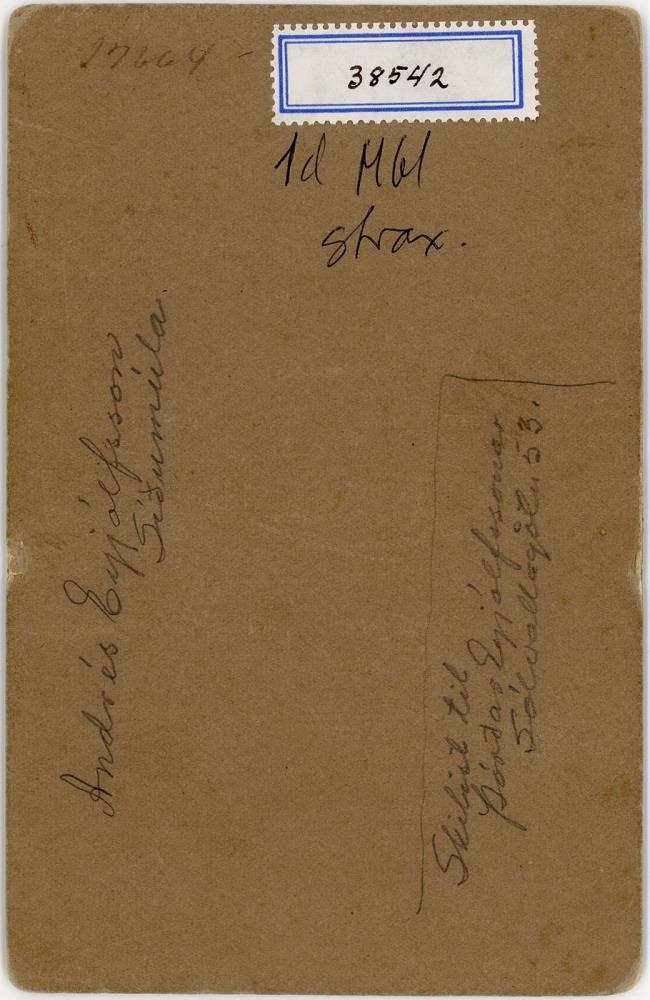 17664 -
38542
1d Mbl
strax.
Andrés Eyjólfsson
Síðumúla.
Skilist til
Þórðar Eyjólfssonar
Sólvallagötu 53.